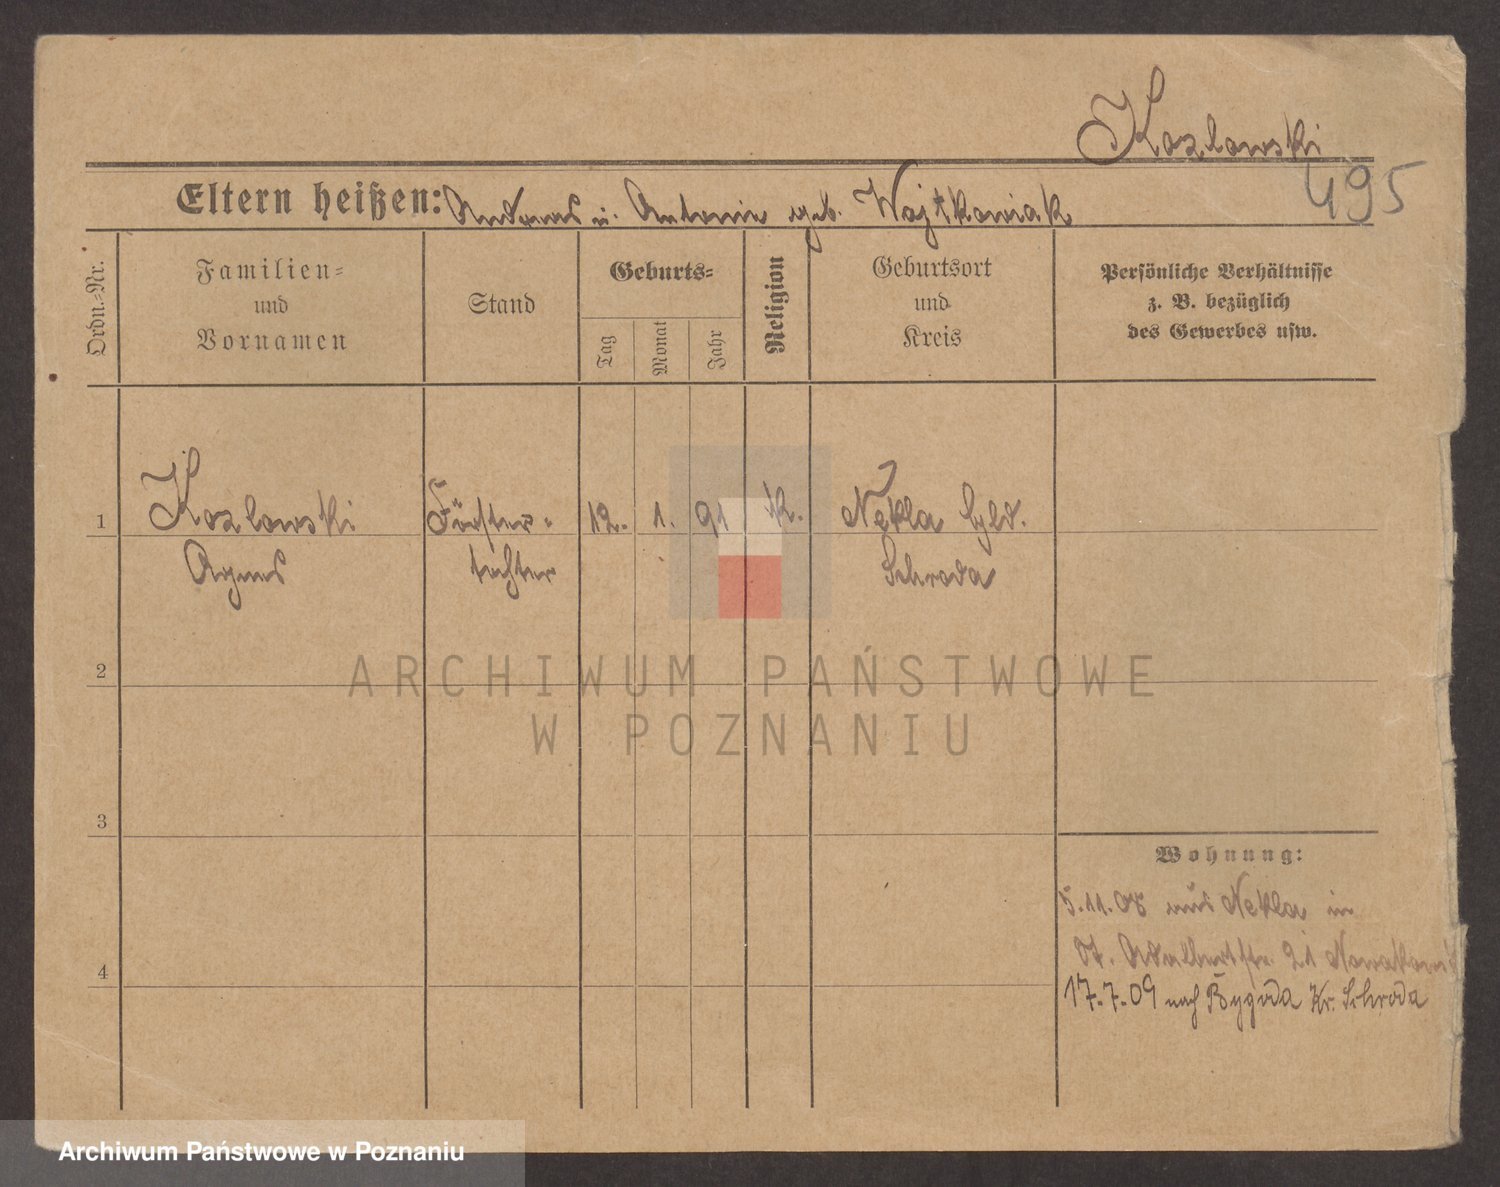 Kozlowski
495
Eltern heißen: Andreas u. Antonie geb. Wojtkowiak
Ordn.-Nr.
Familien-
und
Vornamen
Stand
Geburts-
Tag
Monat
Jahr
Religion
Geburtsort
und
Kreis
Persönliche Verhältnisse
z. B. bezüglich
des Gewerbes usw.
1 Kozlowski Förster- 12. 1. 91 k. Nekla
Agnes tochter Schroda
2
ARCHIWUM PAŃSTWOWE
W POZNANIU
3
Wohnung:
5.11.08 aus Nekla in
Adalbertstr. 21
4
17.7.09 nach Kr. Schroda
Archiwum Państwowe w Poznaniu